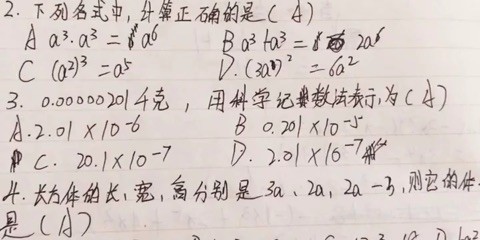 2. 下列各式中，计算正确的是(A)
A a³·a³ = a⁶ B a³+a³ = 2a⁶
C (a²)³ = a⁵ D. (3a)² = 6a²
3. 0.00000201千克，用科学记数法表示为(A)
A. 2.01×10⁻⁶ B 0.201×10⁻⁵
C. 20.1×10⁻⁷ D. 2.01×10⁻⁷
4. 长方体的长、宽、高分别是3a、2a、2a-3，则它的体
是(A)